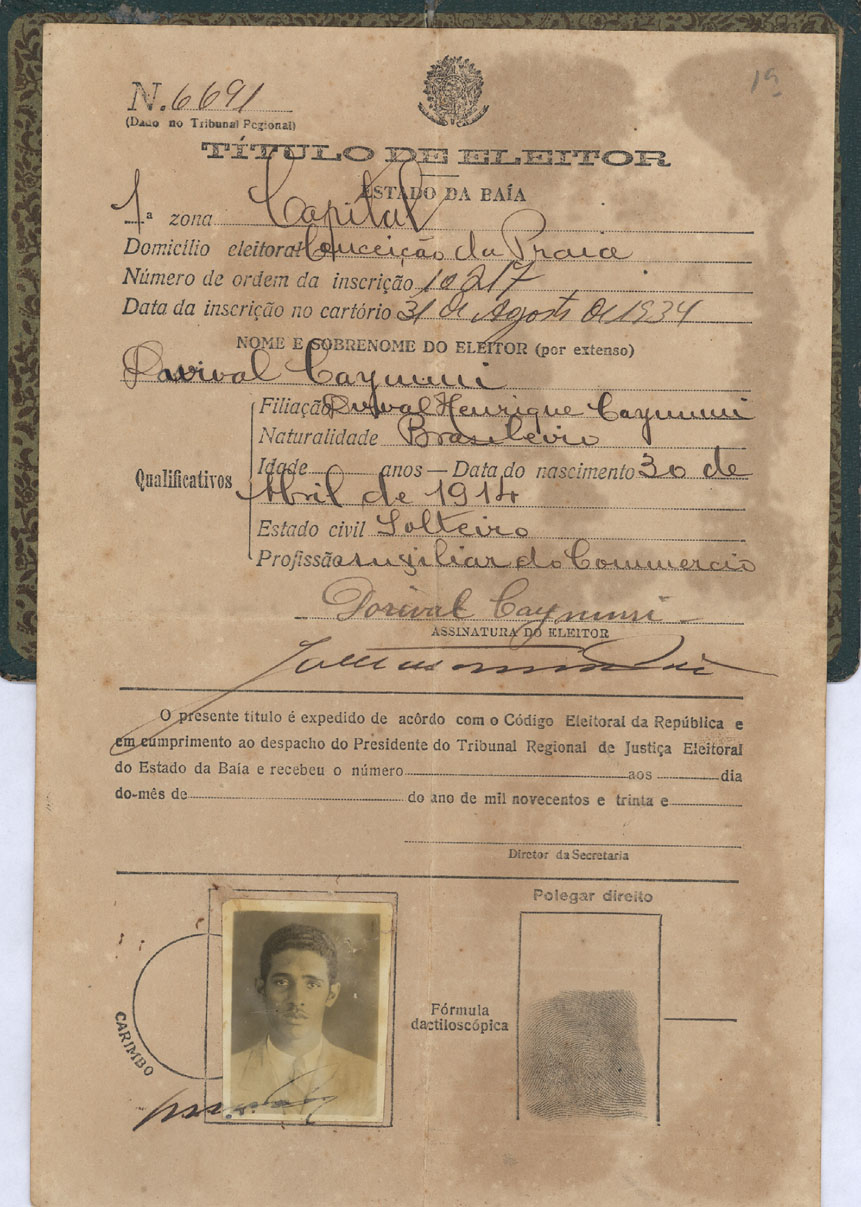 19
N. 6691
(Dado no Tribunal Regional)
TÍTULO DE ELEITOR
ESTADO DA BAÍA
1ª zona Capital
Domicílio eleitoral Conceição da Praia
Número de ordem da inscrição 10217
Data da inscrição no cartório 31 de Agosto de 1934
NOME E SOBRENOME DO ELEITOR (por extenso)
Dorival Caymmi
Qualificativos
Filiação Durval Henrique Caymmi
Naturalidade Brasileiro
Idade anos — Data do nascimento 30 de
Abril de 1914
Estado civil Solteiro
Profissão auxiliar do Commercio
Dorival Caymmi
ASSINATURA DO ELEITOR
O presente título é expedido de acôrdo com o Código Eleitoral da República e
em cumprimento ao despacho do Presidente do Tribunal Regional de Justiça Eleitoral
do Estado da Baía e recebeu o número aos dia
do mês de do ano de mil novecentos e trinta e
Diretor da Secretaria
Polegar direito
CARIMBO
Fórmula
dactiloscópica